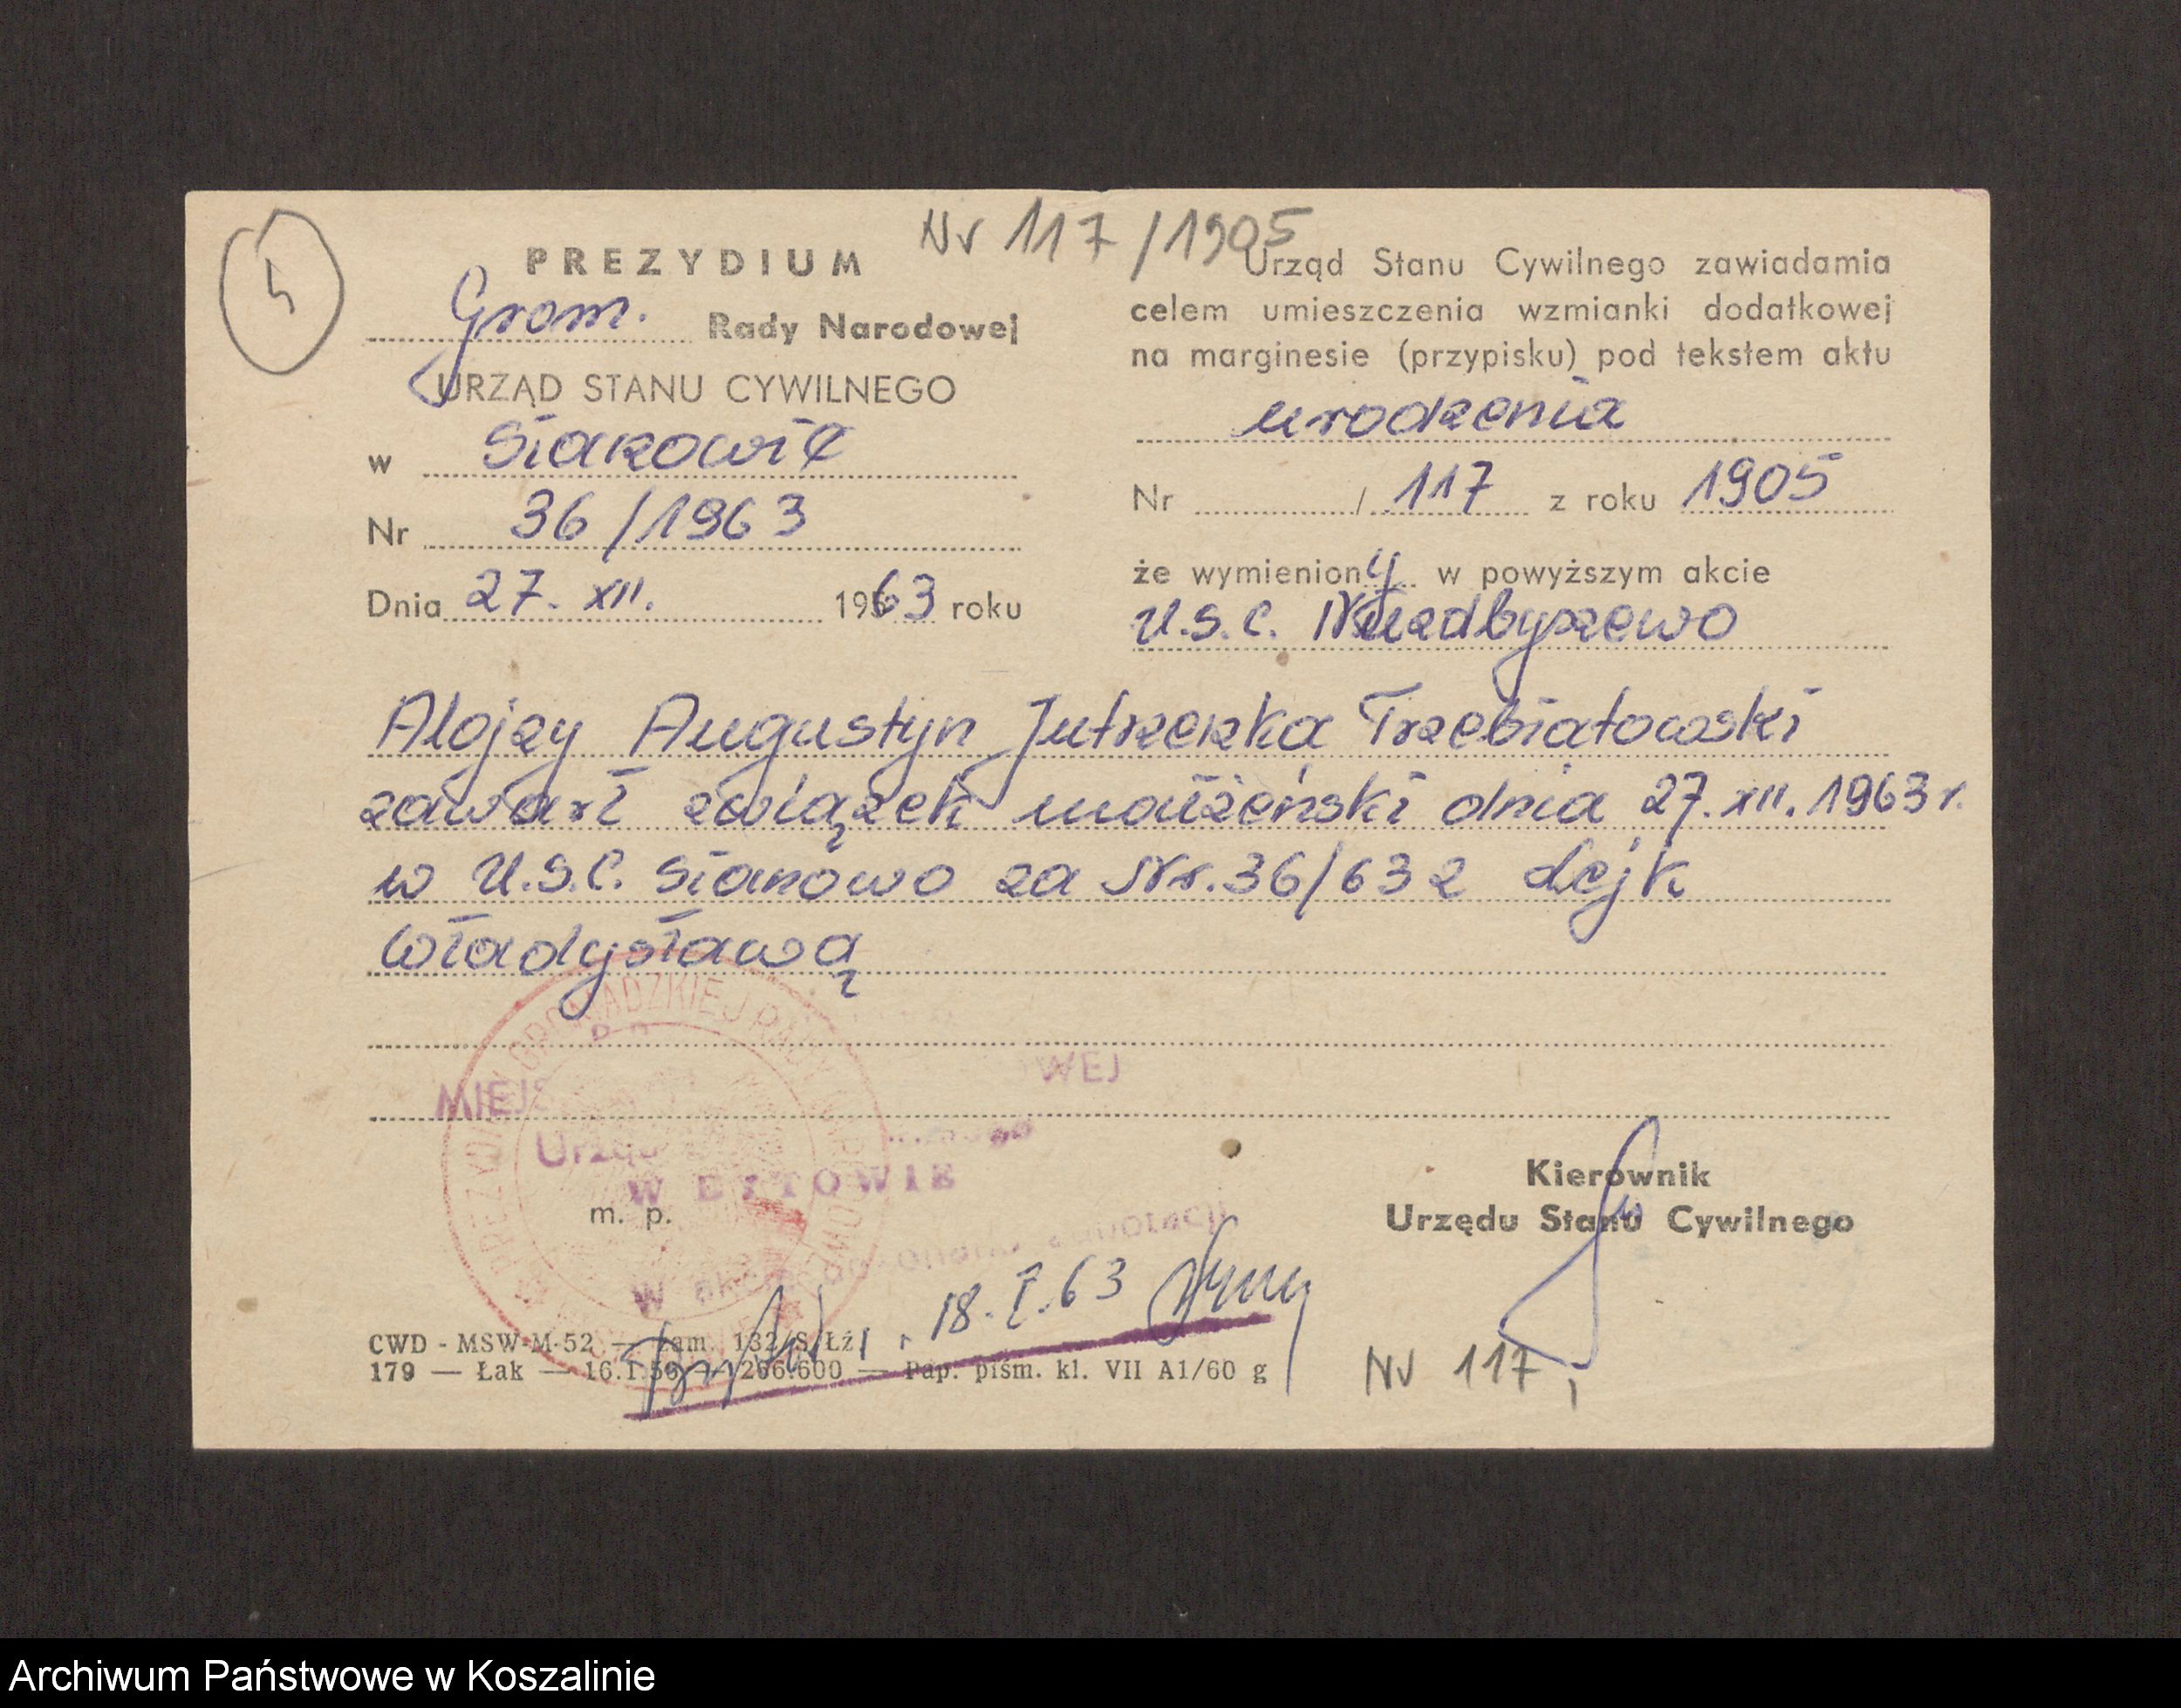 Nr 117/1905
PREZYDIUM
Grom. Rady Narodowej
URZĄD STANU CYWILNEGO
w Sianowie
Nr 36/1963
Dnia 27. XII. 1963 roku
Urząd Stanu Cywilnego zawiadamia
celem umieszczenia wzmianki dodatkowej
na marginesie (przypisku) pod tekstem aktu
urodzenia
Nr / 117 z roku 1905
że wymieniony w powyższym akcie
U.S.C. Niedbyszewo
Alojzy Augustyn Jutrzenka Trzebiatowski
zawarł związek małżeński dnia 27. XII. 1963 r.
w U.S.C. Sianowo za Nr. 36/63 z Lejk
Władysławą
MIEJS WEJ
W BYTOWIE
m. p.
Kierownik
Urzędu Stanu Cywilnego
18. I. 63
CWD - MSW-M-52 — Zam. 132/S/Łź
179 — Łak — 16.1.59 — 266.600 — Pap. piśm. kl. VII A1/60 g
Nr 117
Archiwum Państwowe w Koszalinie